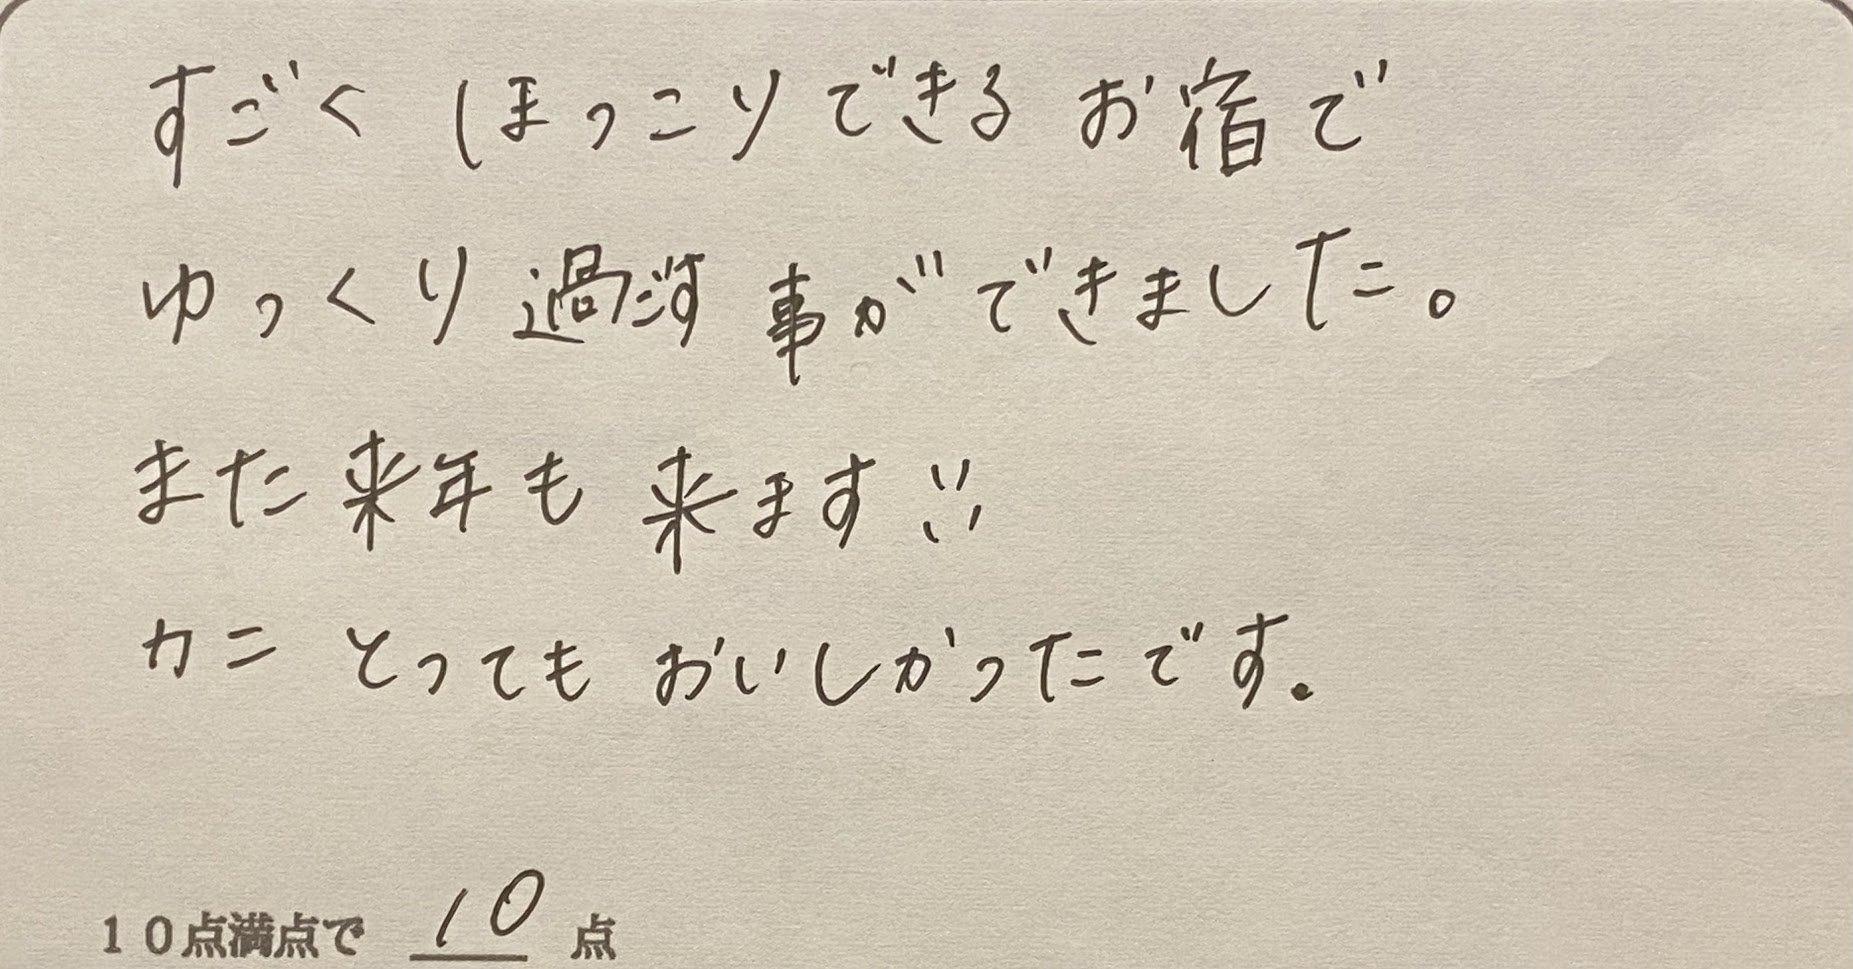 すごく ほっこりできる お宿で
ゆっくり過ごす事ができました。
また来年も 来ます!!
カニ とっても おいしかったです.
10点満点で 10 点